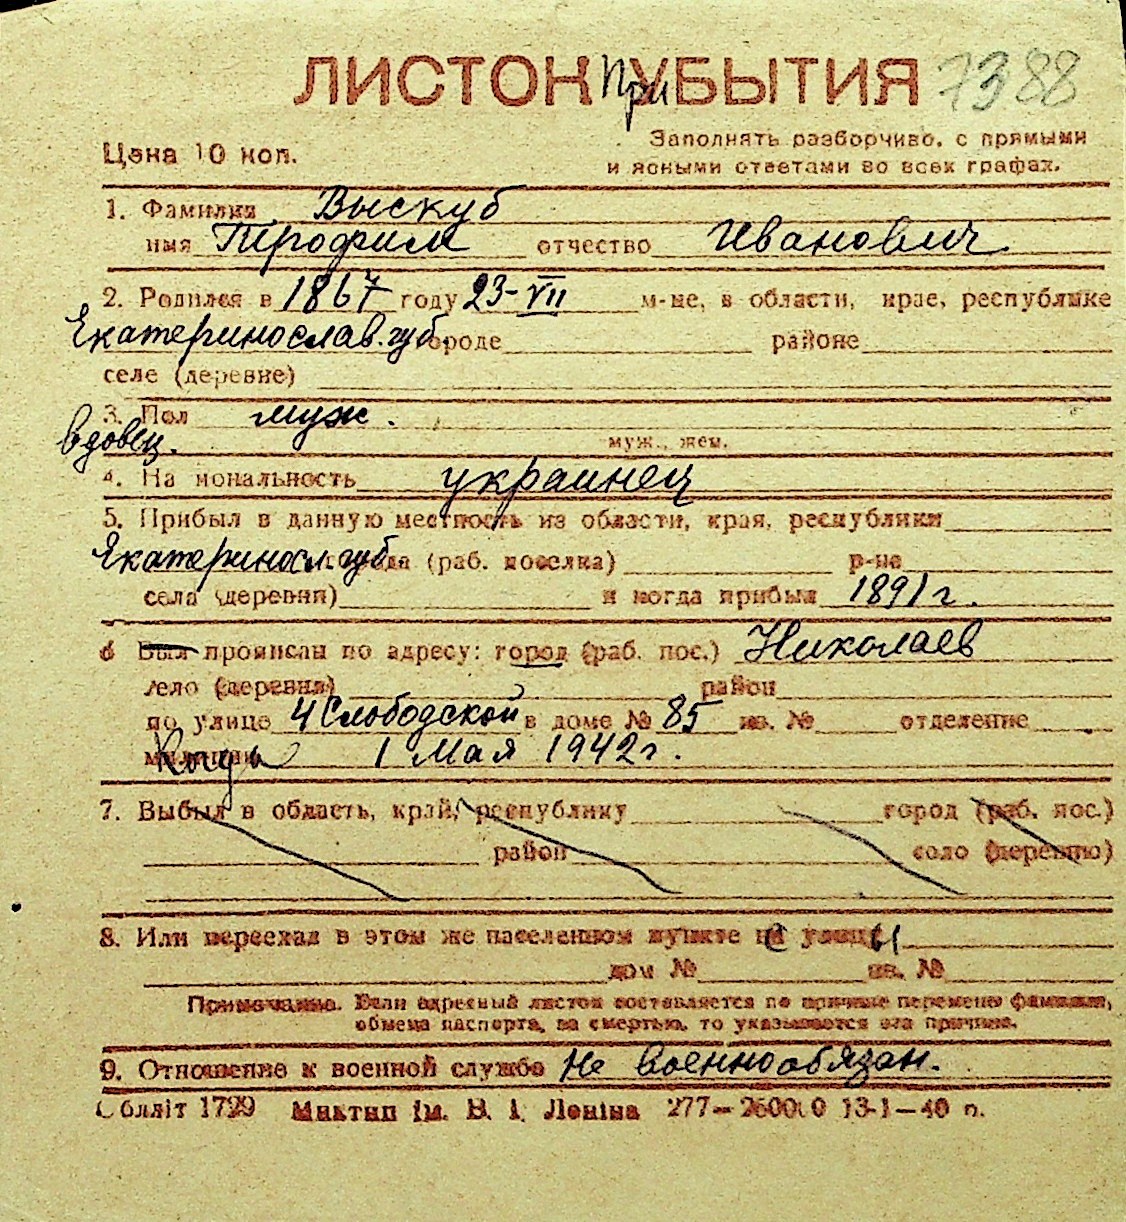 ЛИСТОК ПриУБЫТИЯ 7388
Цена 10 коп.
Заполнять разборчиво, с прямыми
и ясными ответами во всех графах.
1. Фамилия Выскуб
имя Трофим отчество Иванович
2. Родился в 1867 году 23-VII м-це, в области, крае, республике
Екатеринослав. губ. городе районе
селе (деревне)
3. Пол муж.
вдовец. муж., жен.
4. На иональность украинец
5. Прибыл в данную местность из области, края, республики
Екатеринос. губ. города (раб. поселка) р-на
села (деревни) и когда прибыл 1891 г.
6 Был прописан по адресу: город (раб. пос.) Николаев
село (деревня) район
по улице 4 Слободской в доме № 85 кв. № отделение
милиции Когда 1 Мая 1942 г.
7. Выбыл в область, край, республику город (раб. пос.)
район село (деревню)
8. Или переехал в этом же населенном пункте с улицы
дом № кв. №
Примечание. Если адресный листок составляется по причине перемены фамилии,
обмена паспорта, за смертью, то указывается эта причина.
9. Отношение к военной службе Не военнообязан.
Обллiт 1729 Миктип iм. В. I. Ленiна 277—260000 13-1—40 п.